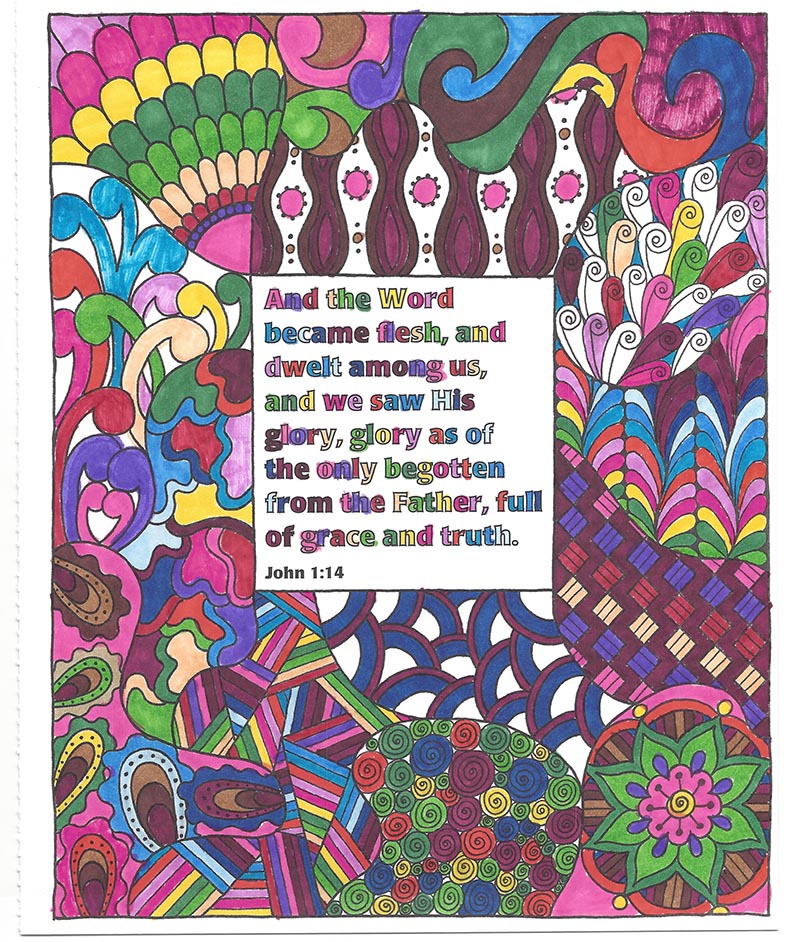 And the Word
became flesh, and
dwelt among us,
and we saw His
glory, glory as of
the only begotten
from the Father, full
of grace and truth.
John 1:14